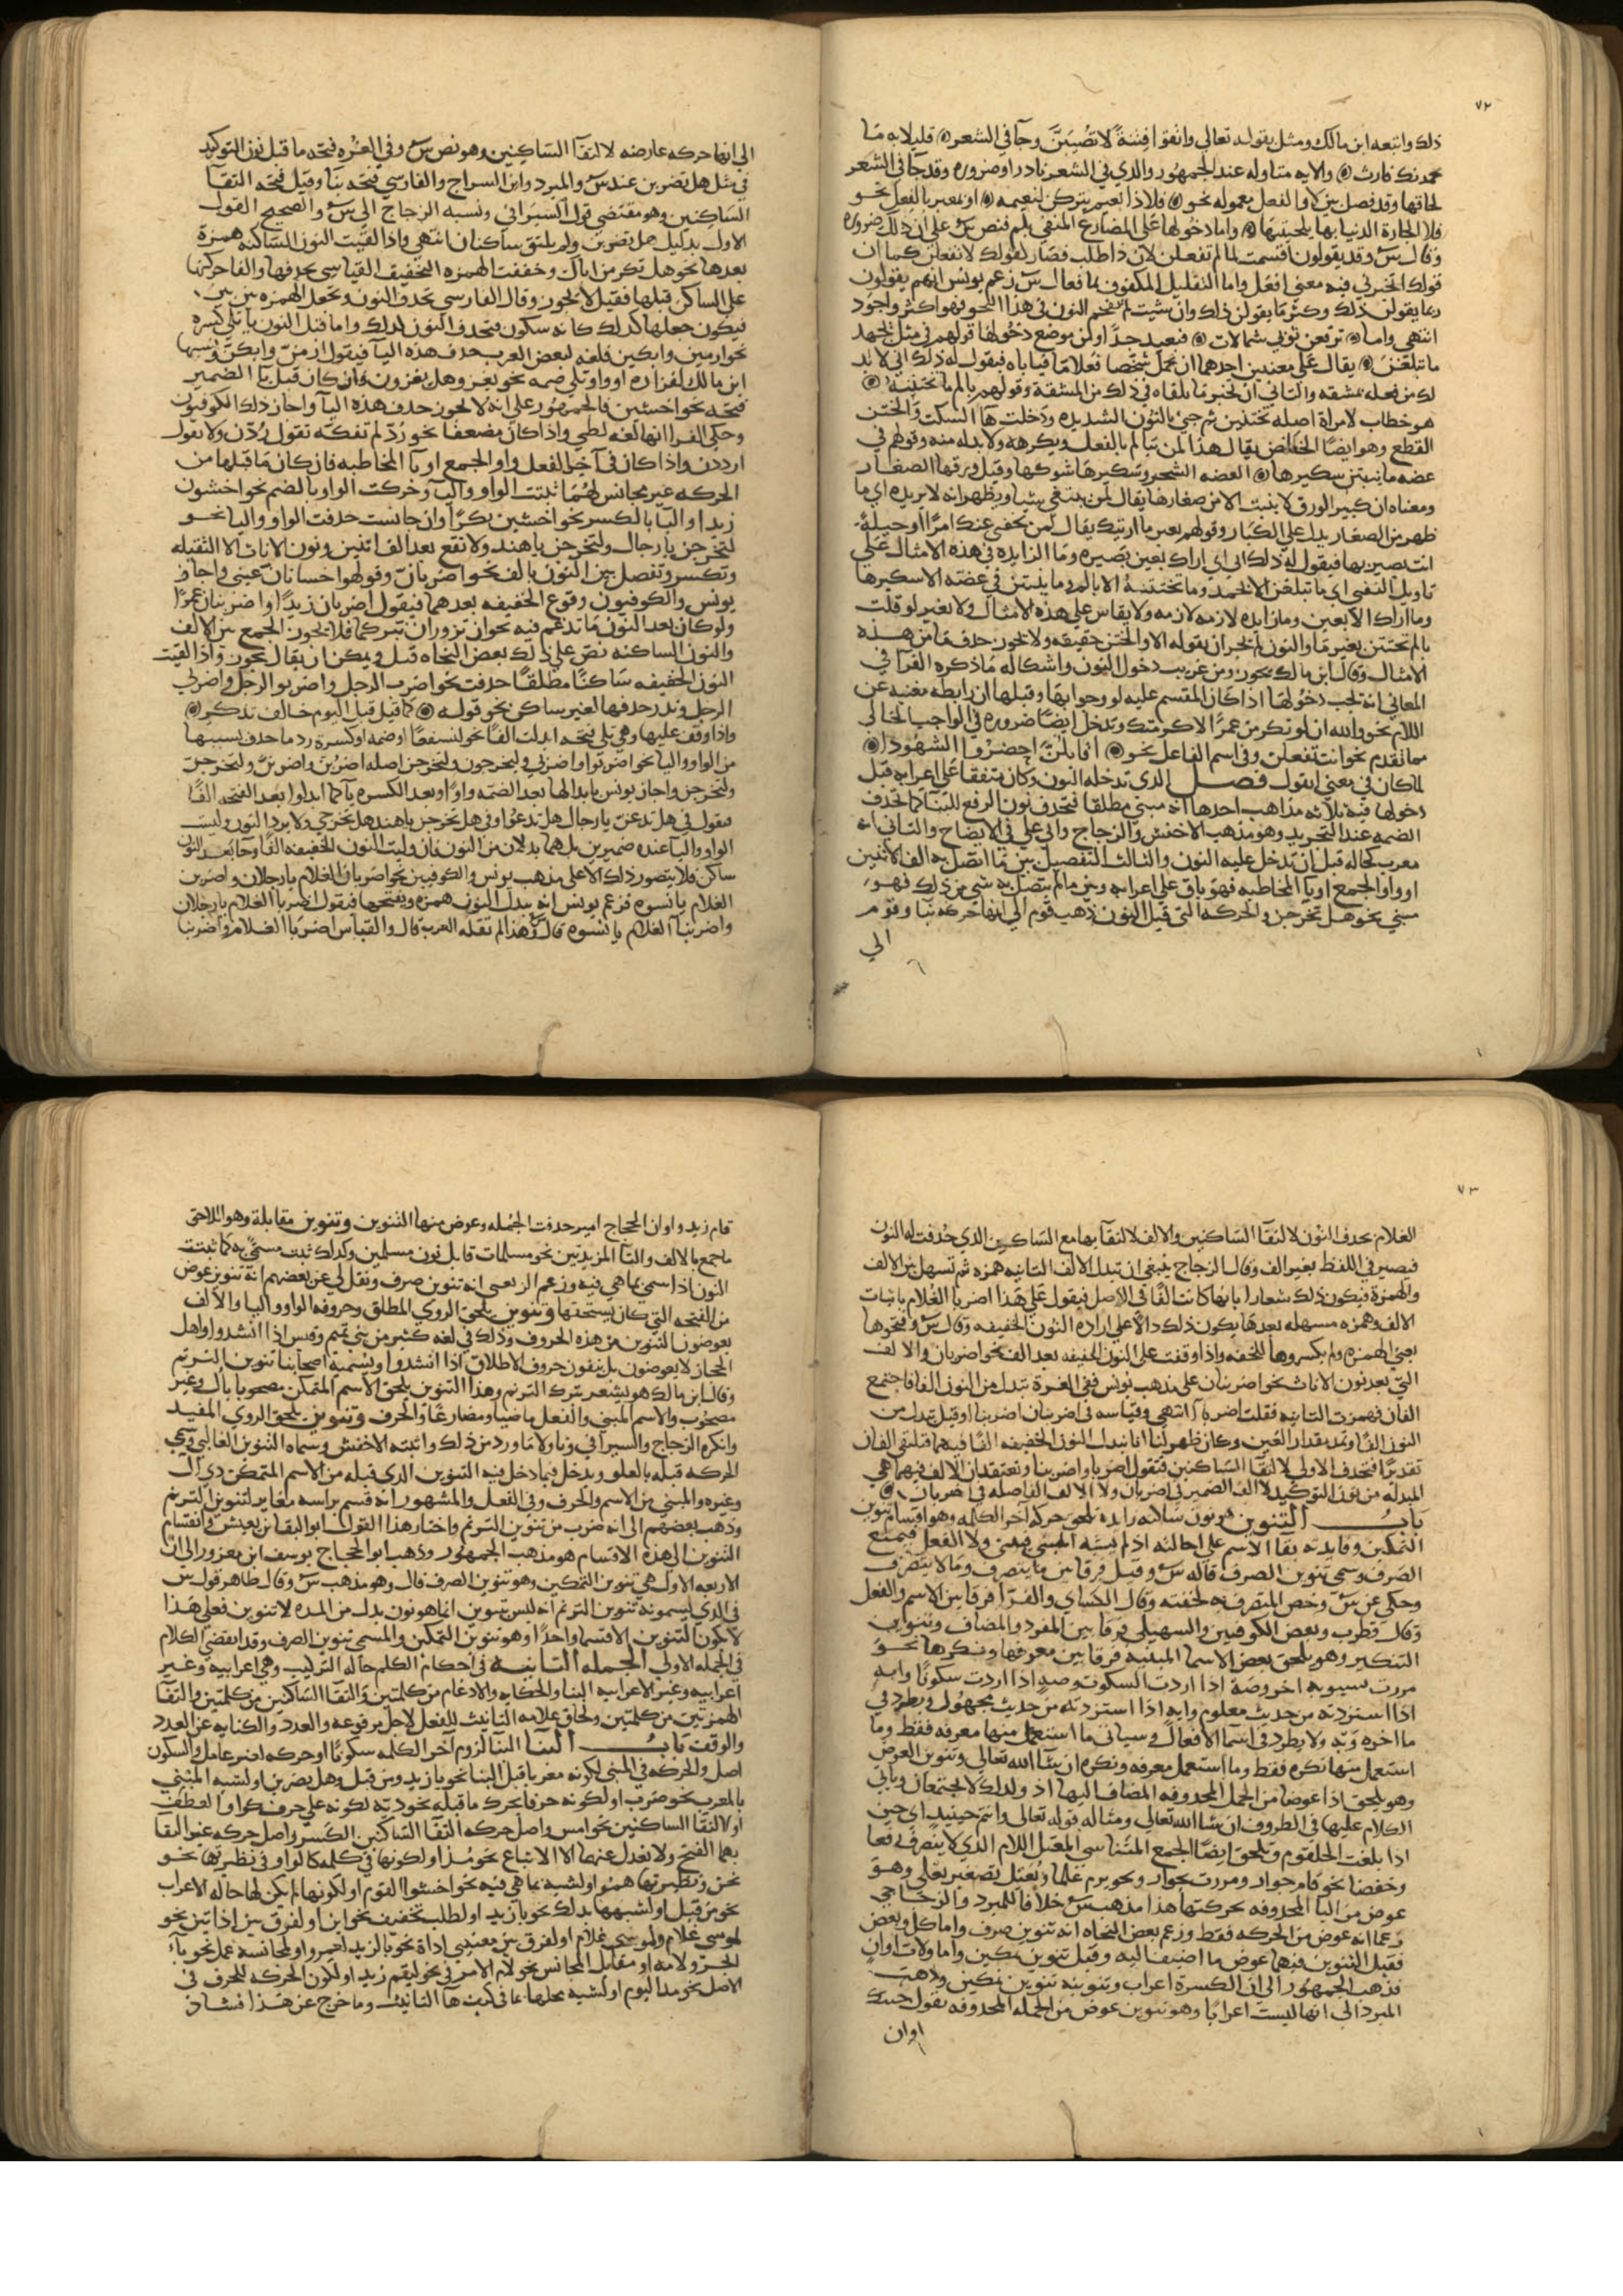 ٧٢
ذلك واتبعه ابن مالك ومثل بقوله تعالى واتقوا فتنة لا تصيبن وجا في الشعر قليلا به ما
يحمدنك وارث والايه متاوله عند الجمهور والذي في الشعر نادر او ضروره وقد جا في الشعر
لحاقها وقد فصل بين لا والفعل معموله نحو فلا ذا نعيم يتركن لنعيمه او بغير بالفعل نحو
فلا الجارة الدنيا بها تلحينها واما دخولها على المضارع المنفي بلم فنص س على ان ذلك ضروره
وقال س وقد يقولون اقسمت لما لم تفعلن لان ذا طلب فصار كقولك لا تفعلن كما ان
قولك اتخبرني فيه معنى افعل واما التقليل المكفوف بما فقال س زعم يونس انهم يقولون
ربما يقولن ذلك وكثر ما يقولن ذلك وان شيت لم تقحم النون في هذا النحو فهو اكثر واجود
انتهى واما ترفعن ثوبي شمالات فبعيد جدا ومن موضع دخولها قولهم في مثل بجهد
ما تبلغن يقال على معنيين احدهما ان تحمل شخصا فعلا ما فياباه فيقول له ذلك اي لا بد
لك من فعله بمشقه والثاني ان تخبر بما يلقاه في ذلك من المشقة وقولهم بالم ما تختننه
هو خطاب لامراة اصله تختنين ثم جي بالنون الشديده ودخلت ها السكت والختن
القطع وهو ايضا الخفاض يقال هذا لمن يتالم بالفعل ويكرهه ولا بد له منه وقولهم في
عضه ما ينبتن شكيرها العضه الشجر وشكيرها شوكها وقيل ورقها الصغار
ومعناه ان كبير الورق لا ينبت الا من صغارها يقال لمن يبتغي شيا ويظهر انه لا يريده اي ما
ظهر من الصغار يدل على الكبار وقولهم بعين ما ارينك يقال لمن يخفي عنك امرا او حيلة
انت بصير بها فيقول له ذلك اي اي اراك بعين بصيره وما الزايده في هذه الامثال على
تاويل النفي اي ما تبلغن الا بجهد وما تختننه الا بالم وما ينبتن في عضة الا شكيرها
وما اراك الا بعين وما زايده لازمه ولا يقاس على هذه الامثال ولا تغير لو قلت
بالم تختتن بغير ما والنون لم يجز ان يقوله الا والختن حقيقه ولا يجوز حذف ما من هذه
الامثال وقال ابن مالك يجوز ومن غريب دخول النون واشكاله ما ذكره الفرا في
المعاني انه يجب دخولها اذا كان المقسم عليه لو وجوابها وقبلها ان رابطه مغنيه عن
اللام نحو والله ان لو تكرمن عمرا لاكرمتك وتدخل ايضا ضروره في الواجب الخالي
مما تقدم نحو انت تفعلن وفي اسم الفاعل نحو اقايلن احضروا الشهودا
لما كان في معنى ايقول فصل الذي تدخله النون وكان متفقا على اعرابه قبل
دخولها فيه ثلاثه مذاهب احدها انه مبني مطلقا فتحذف نون الرفع للبنا كما تحذف
الضمه عند التجريد وهو مذهب الاخفش والزجاج وابي علي في الايضاح والثاني انه
معرب كحاله قبل ان تدخل عليه النون والثالث التفصيل بين ما اتصل به الف الاثنين
او واو الجمع او يا المخاطبه فهو باق على اعرابه وبين ما لم يتصل به شي من ذلك فهو
مبني نحو هل تخرجن والحركه التي قبل النون ذهب قوم الى انها حركه بنا وقوم
الى
الى انها حركه عارضه لالتقا الساكنين وهو نص س وفي الغره فتحه ما قبل نون التوكيد
في مثل هل تضربن عند س والمبرد وابن السراج والفارسي فتحه بنا وقيل فتحه التقا
الساكنين وهو مقتضى قول السيرافي ونسبه الزجاج الى س والصحيح القول
الاول بدليل هل تضربن ولم يلتق ساكنان انتهى واذا لقيت النون الساكنه همزة
بعدها نحو هل تكرمن اباك وخففت الهمزه التخفيف القياسي بحذفها والقا حركتها
على الساكن قبلها فقيل لا يجوز وقال الفارسي تحذف النون وتجعل الهمزه بين بين
فيكون جعلها كذلك كانه سكون فتحذف النون لذلك واما قبل النون يا تلي كسره
نحو ارمين وابكين فلغه لبعض العرب حذف هذه اليا فيقول ارمن وابكن ونسبها
ابن مالك لفزاره او واو تلي ضمه نحو ليغزو وهل يغزون وان كان قبل يا الضمير
فتحه نحو اخشين فالجمهور على انه لا يجوز حذف هذه اليا واجاز ذلك الكوفيون
وحكى الفرا انها لغه لطي واذا كان مضعفا نحو رد لم تفكه تقول ردن ولا تقول
ارددن واذا كان في آخر الفعل واو الجمع او يا المخاطبه فان كان ما قبلها من
الحركه غير مجانس لهما ثبتت الواو واليا وحركت الواو بالضم نحو اخشون
زيدا واليا بالكسر نحو اخشين بكرا وان جانست حذفت الواو واليا نحو
لتخرجن يا رجال ولتخرجن يا هند ولا تقع بعد الف اثنين ونون الاناث الا الثقيله
وتكسر وتفصل بين النون بالف نحو اضربنان وقولهوا خسانان عيني واجاز
يونس والكوفيون وقوع الخفيفه بعدهما فيقول اضربان زيدا واضربنان عمرا
ولو كان بعد النون ما تدغم فيه نحو ان تزوران نبركما فلا يجوز الجمع بين الالف
والنون الساكنه نص على ذلك بعض النحاه قيل ويمكن ان يقال يجوز واذا لقيت
النون الخفيفه ساكنا مطلقا حذفت نحو اضرب الرجل واضربو الرجل واضربي
الرجل وندر حذفها لغير ساكن نحو قوله كما قيل قبل اليوم خالف تذكر
واذا وقف عليها وهي تلي فتحه ابدلت الفا نحو لنسفعا او ضمه او كسرة رد ما حذف بسببها
من الواو واليا نحو اضربوا واضربي ولتخرجون ولتخرجن اصله اضربن واضربن ولتخرجن
ولتخرجن واجاز يونس ابدالها بعد الضمه واوا وبعد الكسره يا كما ابدلوا بعد الفتحه الفا
فيقول في هل تدعن يا رجال هل تدعوا وفي هل تخرجن يا هند هل تخرجي ولا يرد النون وليست
الواو واليا عنده ضميرين بل هما بدلان من النون فان وليت النون الخفيفه الفا وجا بعد النون
ساكن فلا يتصور ذلك الا على مذهب يونس والكوفيين نحو اضربان الغلام يا رجلان واضربن
الغلام يا نسوه فزعم يونس انه يبدل النون همزه ويفتحها فيقول اضربا الغلام يا رجلان
واضربنا الغلام يا نسوه قال س وهذا لم تقله العرب قال والقياس اضربا الغلام واضربنا
٧٣
الغلام بحذف النون لالتقا الساكنين والالف لالتقايها مع الساكن الذي حذفت له النون
فيصير في اللفظ بغير الف وقال الزجاج ينبغي ان تبدل الالف الثانيه همزه ثم تسهل بين الالف
والهمزة فيكون ذلك شعارا بانها كانت الفا في الاصل فيقول على هذا اضربا الغلام باثبات
الالف وهمزه مسهله بعدها يكون ذلك دالا على ارادة النون الخفيفه وقال س وفتحوها
يعني الهمزه ولم يكسروها للخفه واذا وقفت على النون الخفيفه بعد الف نحو اضربان والالف
التي بعد نون الاناث نحو اضربنان على مذهب يونس ففي الغرة تبدل من النون الفا فاجتمع
الفان فهمزت الثانيه فقلت اضربا آ انتهى وقياسه في اضربنان اضربنا ا وقيل تبدل من
النون الفا وتمد بقدار الفين وكان ظهر لنا انا نبدل النون الخفيفه الفا فيهما فتلتقي الفان
تقديرا فتحذف الاولى لالتقا الساكنين فتقول اضربا واضربنا وتعتقد ان الالف فيهما هي
المبدله من نون التوكيد لا الف الضمير في اضربان ولا الالف الفاصله في اضربنان
باب التنوين هو نون ساكنه زايدة تلحق حركه آخر الكلمه وهو اقسام تنوين
التمكين وفايدته بقا الاسم على اصالته اذ لم يشبه المبني فيبنى ولا الفعل فيمنع
الصرف وسمي تنوين الصرف قاله س وقيل فرقا بين ما ينصرف وما لا ينصرف
وحكي عن س وخص المنصرف به لخفته وقال الكساي والفرا فرقا بين الاسم والفعل
وقال قطرب وبعض الكوفيين والسهيلي فرقا بين المفرد والمضاف وتنوين
التنكير وهو يلحق بعض الاسما المبنيه فرقا بين معرفها ومنكرها نحو
مررت بسيبويه اخر وصة اذا اردت السكوت وصه اذا اردت سكوتا وايه
اذا استزدته من حديث معلوم وايه اذا استزدته من حديث مجهول ويطرد في
ما اخره ويه ولا يطرد في اسما الافعال وسياتي ما استعمل منها معرفه فقط وما
استعمل منها نكره فقط وما استعمل معرفه ونكره ان شا الله تعالى وتنوين العوض
وهو يلحق اذ عوضا من الجمل المحذوفه المضاف اليها اذ ولذلك لا يجتمعان وياتي
الكلام عليها في الظروف ان شا الله تعالى ومثاله قوله تعالى وانتم حينيذ اي حين
اذا بلغت الحلقوم ويلحق ايضا الجمع المتناهي المعتل اللام الذي لا ينصرف رفعا
وخفضا نحو قام جوار ومررت بجوار ونحو يرم علما ويعيل تصغير يعلى وهو
عوض من اليا المحذوفه بحركتها هذا مذهب س خلافا للمبرد والزجاجي
زعما انه عوض من الحركه فقط وزعم بعض النحاه انه تنوين صرف واما كل وبعض
فقيل التنوين فيهما عوض ما اضيفا اليه وقيل تنوين تمكين واما ولات اوان
فذهب الجمهور الى ان الكسرة اعراب وتنوينه تنوين تمكين وذهب
المبرد الى انها ليست اعرابا وهو تنوين عوض من الجمله المحذوفه تقول جيتك
اوان
قام زيد واوان الحجاج امير حذفت الجمله وعوض منها التنوين وتنوين مقابلة وهو اللاحق
ما جمع بالالف والتا المزيدتين نحو مسلمات قابل نون مسلمين وكذلك ثبت مسمى به كما ثبتت
النون اذا سمي بما هي فيه وزعم الربعي انه تنوين صرف ونقل لي عن بعضهم انه تنوين عوض
من الفتحه التي كان يستحقها وتنوين يلحق الروي المطلق وحروفه الواو واليا والالف
يعوضون التنوين من هذه الحروف وذلك في لغه كثير من بني تميم وقيس اذا انشدوا واهل
الحجاز لا يعوضون بل يبقون حروف الاطلاق اذا انشدوا ويسميه اصحابنا تنوين الترنم
وقال ابن مالك هو يشعر بترك الترنم وهذا التنوين يلحق الاسم المتمكن مصحوبا بال وغير
مصحوب والاسم المبني والفعل ماضيا ومضارعا والحرف وتنوين يلحق الروي المقيد
وانكره الزجاج والسيرافي وتاولا ما ورد من ذلك واثبته الاخفش وسماه التنوين الغالي وسمي
الحركه قبله بالغلو ويدخل فيما دخل فيه التنوين الذي قبله من الاسم المتمكن ذي ال
وغيره والمبني من الاسم والحرف وفي الفعل والمشهور انه قسم براسه مغاير لتنوين الترنم
وذهب بعضهم الى انه ضرب من تنوين الترنم واختار هذا القول ابو البقا بن يعيش وانقسام
التنوين الى هذه الاقسام هو مذهب الجمهور وذهب ابو الحجاج يوسف ابن معزوز الى ان
الاربعه الاول هي تنوين التمكين وهو تنوين الصرف قال وهو مذهب س وقال ظاهر قول س
في الذي يسمونه تنوين الترنم انه ليس تنوين انما هو نون بدل من المده لا تنوين فعلى هذا
لا يكون التنوين الا قسما واحدا وهو تنوين التمكين والمسمى تنوين الصرف وقد انقضى الكلام
في الجمله الاولى الجمله الثانيه في احكام الكلم حاله التركيب وهي اعرابيه وغير
اعرابيه وغير الاعرابيه البنا والحكايه والادغام من كلمتين والتقا الساكنين من كلمتين والتقا
الهمزتين من كلمتين ولحاق علامه التانيث للفعل لاجل مرفوعه والعدد والكنايه عن العدد
والوقف باب البنا البنا لزوم آخر الكلمه سكونا او حركه لغير عامل والسكون
اصل والحركه في المبني لكونه معربا قبل البنا نحو يا زيد ومن قبل وهل يضربن او لشبه المبني
بالمعرب نحو ضرب او لكونه حرفا تحرك ما قبله نحو ديه لكونه على حرف كواو العطف
او لالتقا الساكنين نحو امس واصل حركه التقا الساكنين الكسر واصل حركه غير التقا
بهما الفتح ولا يعدل عنهما الا لاتباع نحو منذ او لكونها في كلمه كالواو في نظيرتها نحو
نحن ونظيرتها همو او لشبه بما هي فيه نحو اخشوا القوم او لكونها لم يكن لها حاله الاعراب
نحو من قبل او لشبهها بذلك نحو يا زيد او لطلب تخفيف نحو اين او لفرق بين اداتين نحو
لموسى غلام ولموسى غلام او لفرق بين معنيي اداة نحو يا لزيد لعمرو او لمجانسه عمل نحو باء
الجر ولامه او مقابل المجانس نحو لام الامر في نحو ليقم زيد او لكون الحركه للحرف في
الاصل نحو مذ اليوم او لشبه محلها بما في كنف ها التانيث وما خرج عن هذا فشاذ